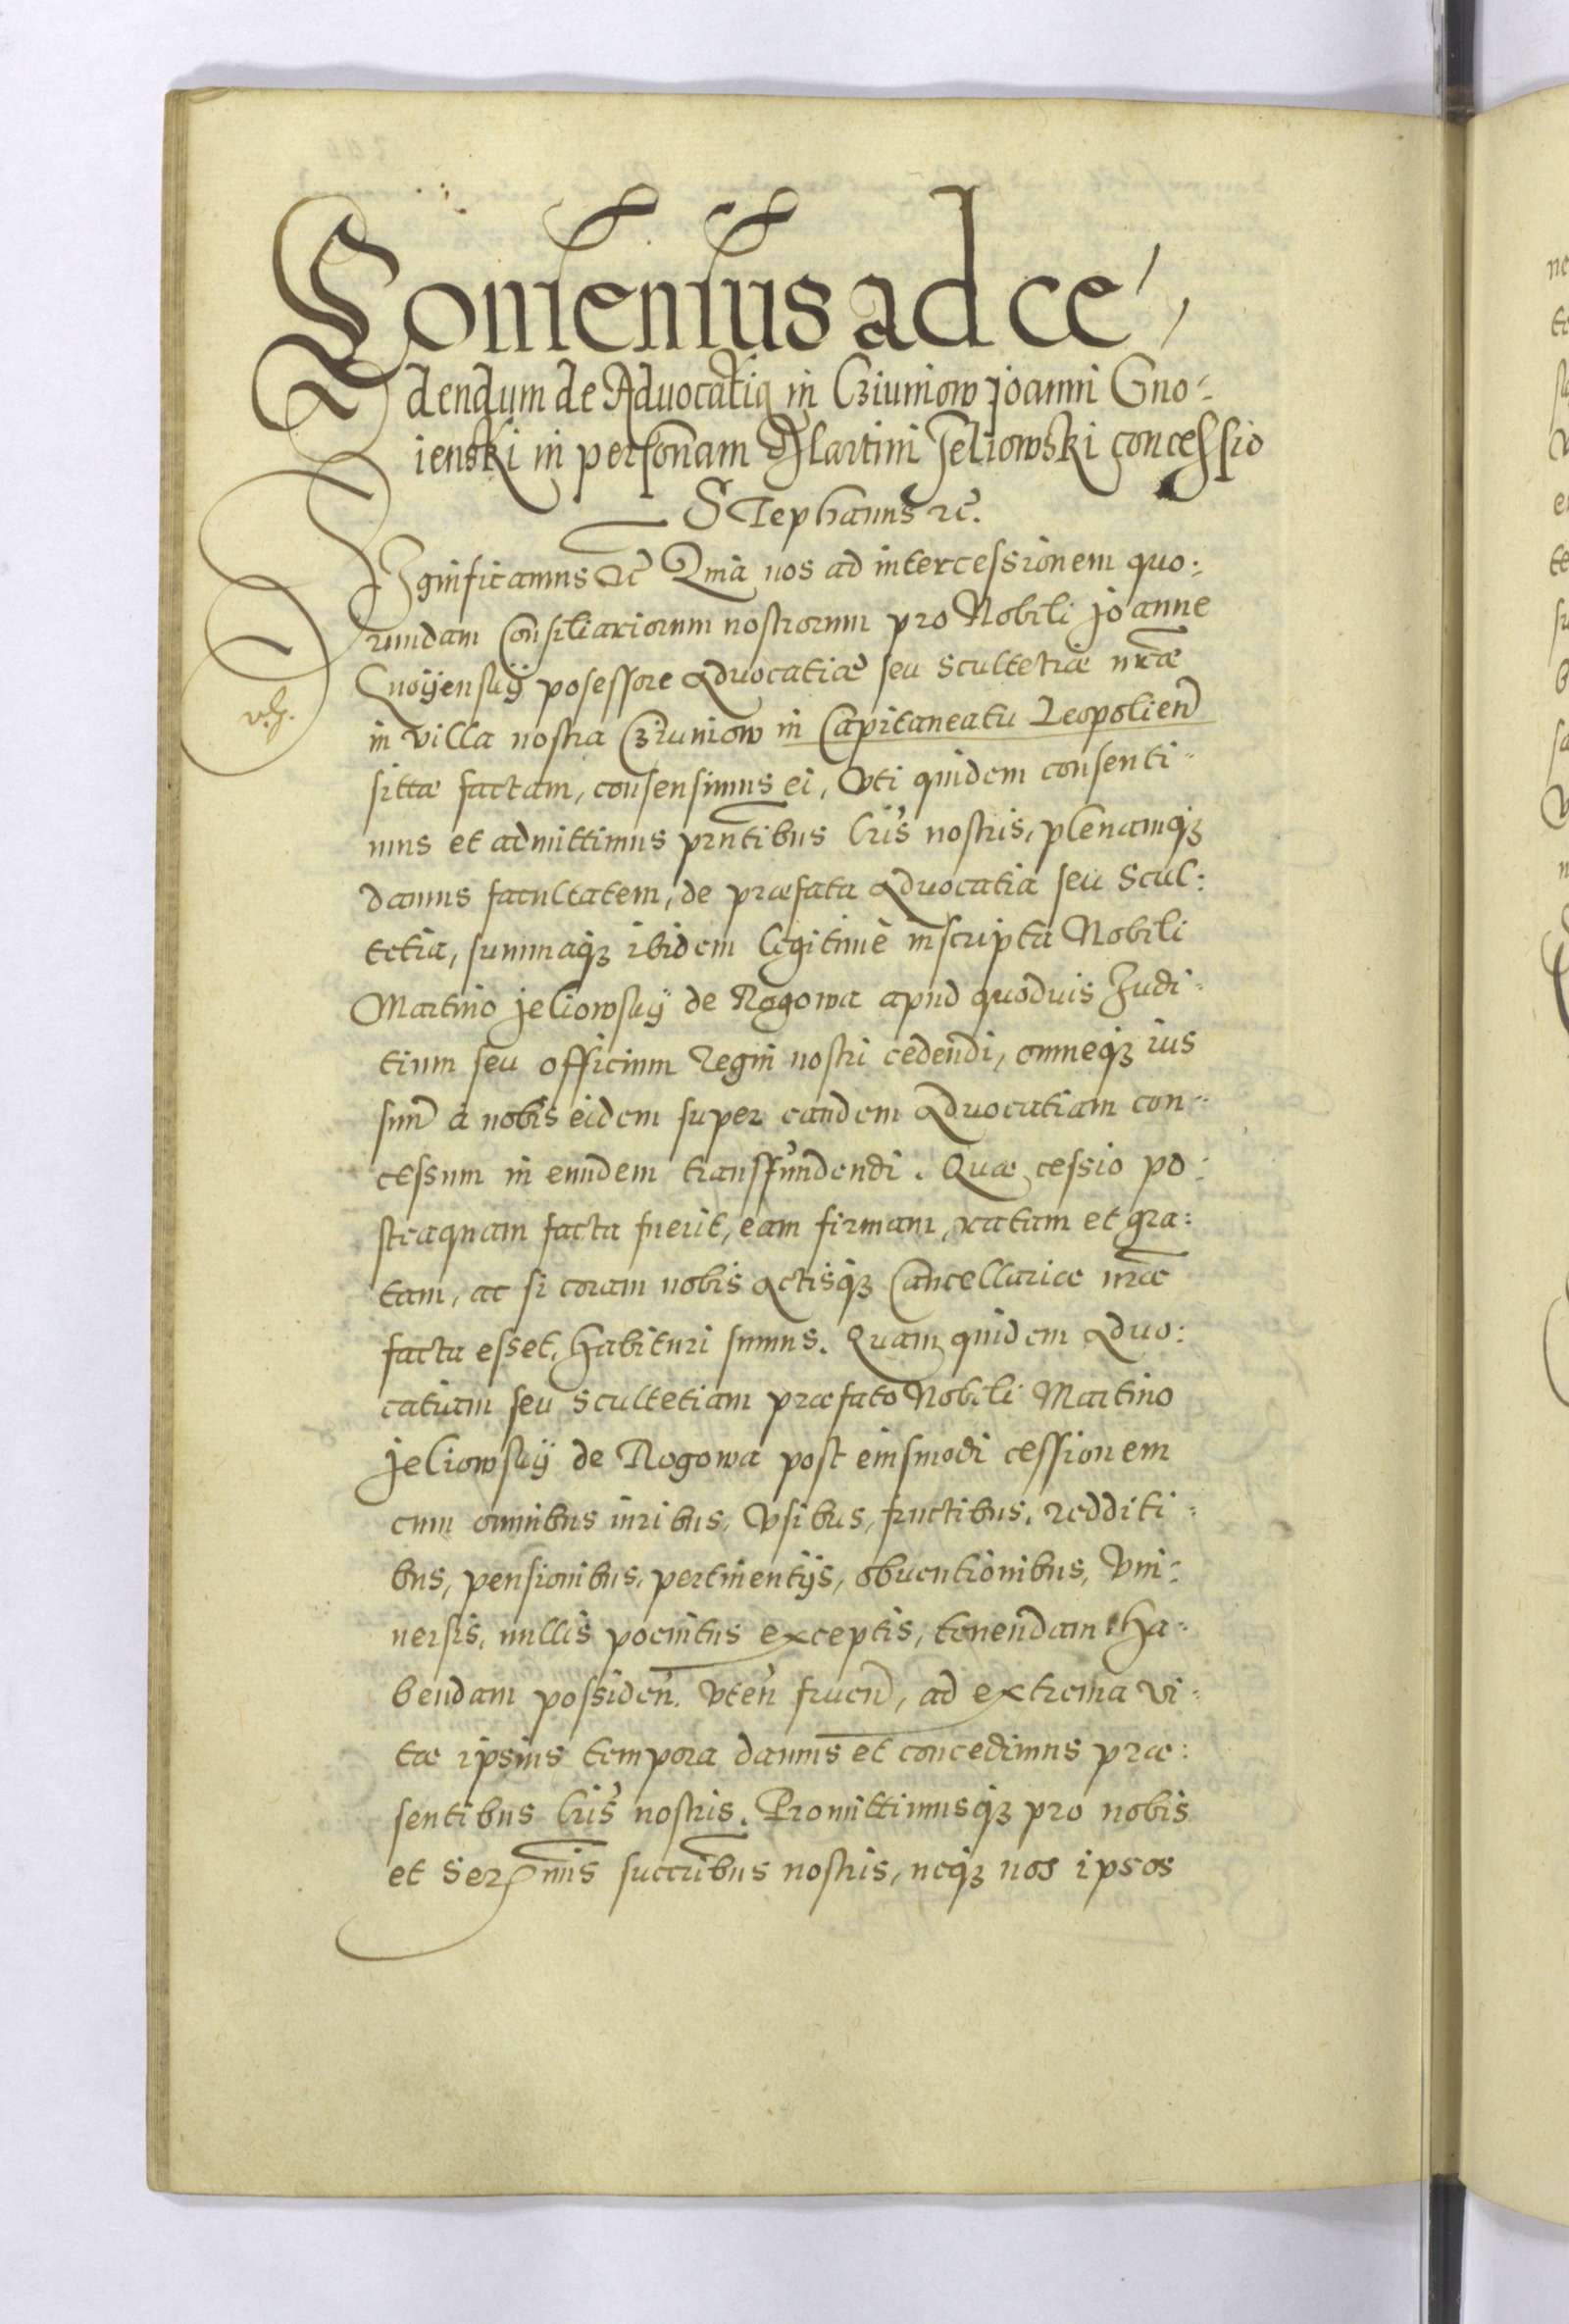 Consensus ad ce,
dendum de Advocatia in Cziuniow Joanni Gno-
ienski in personam Martini Jeliowski concessio
Stephanus etc̃.
Significamus etc̃ Quia nos ad intercessionem quo:
rundam Consiliariorum nostrorum pro Nobili Joanne
Gnoÿenskÿ posessore Advocatiæ seu Scultetiæ nr̃æ
in villa nostra Cziuniow in Capitaneatu Leopolien̄
sittæ factam, consensimus ei, Vti quidem consenti-
mus et admittimus pr̃ntibus Lr̃is nostris, plenamqʒ
damus facultatem, de præfata Advocatia seu Scul:
tetia, summaqʒ ibidem legitimè inscripta Nobili
Martino Jeliowskÿ de Rogowa apud quoduis Judi-
tium seu officium Regni nostri cedendi, omneqʒ ius
suū à nobis eidem super eandem Aduocatiam con-
cessum in eundem transfundendi. Quæ cessio po:
steaquam facta fuerit, eam firmam, ratam et gra:
tam, ac si coram nobis Actisqʒ Cancellariæ nr̃æ
facta esset, habituri sumus. Quam quidem Aduo:
catiam seu Scultetiam præfato Nobili Martino
Jeliowskÿ de Rogowa post eiusmodi cessionem
cum omnibus iuribus, Vsibus, fructibus, redditi-
bus, pensionibus, pertinentijs, obuentionibus, Vni:
uersis, nullis poenitus exceptis, tenendam Ha-
bendam possideñ. vteñ fruend̄, ad extrema vi-
tæ ipsius tempora damus et concedimus præ:
sentibus Lr̃is nostris. Promittimusqʒ pro nobis
et Serᵐ̃is succr̃ibus nostris, neqʒ nos ipsos